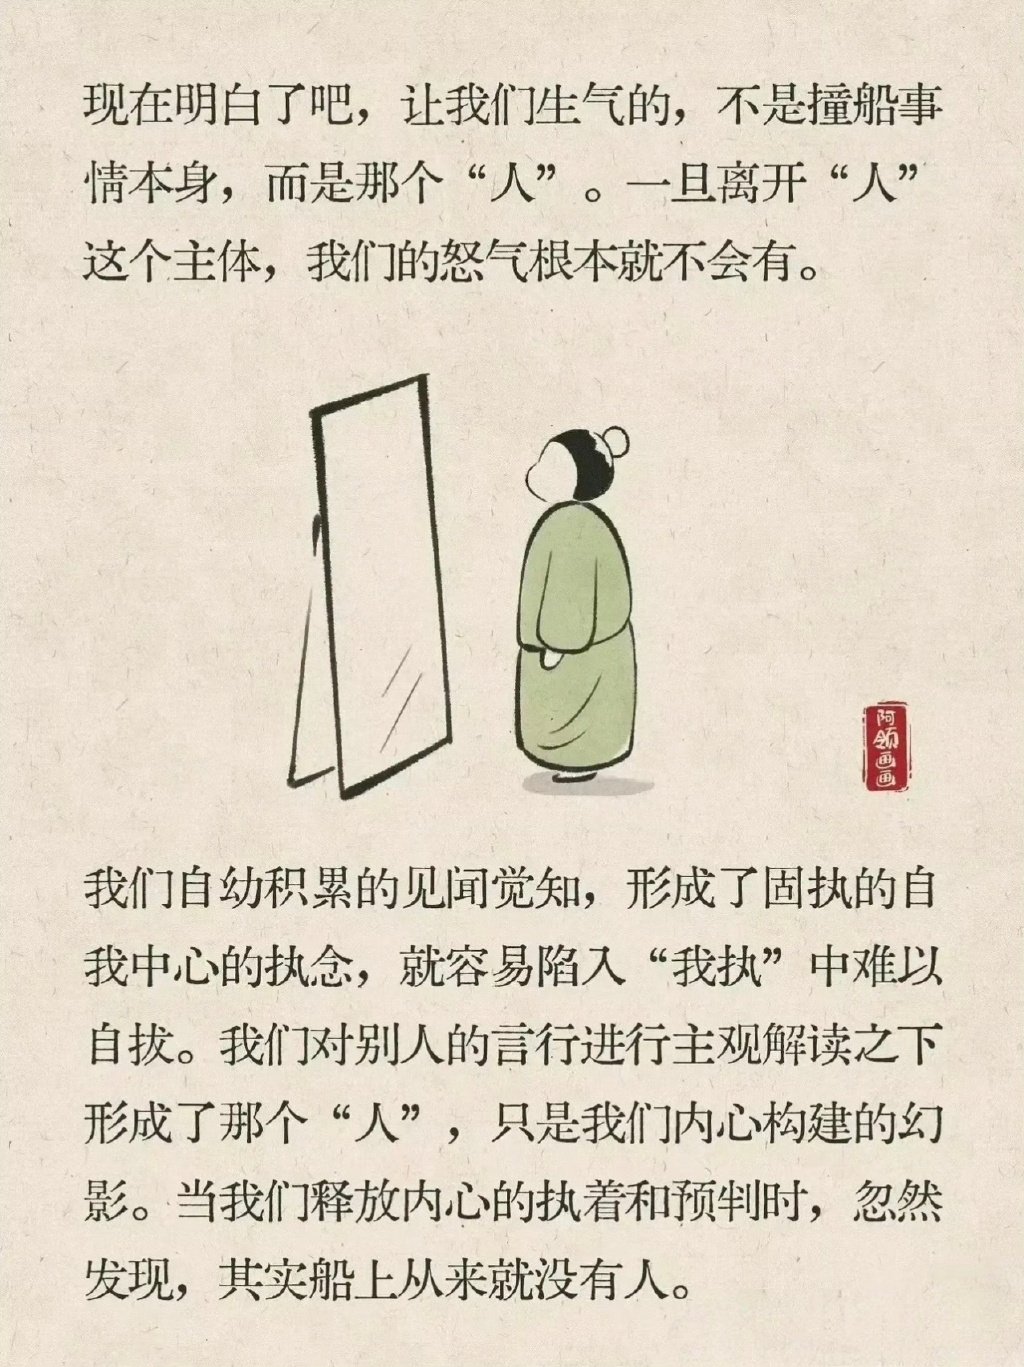 现在明白了吧，让我们生气的，不是撞船事
情本身，而是那个“人”。一旦离开“人”
这个主体，我们的怒气根本就不会有。
阿
领
画
画
我们自幼积累的见闻觉知，形成了固执的自
我中心的执念，就容易陷入“我执”中难以
自拔。我们对别人的言行进行主观解读之下
形成了那个“人”，只是我们内心构建的幻
影。当我们释放内心的执着和预判时，忽然
发现，其实船上从来就没有人。